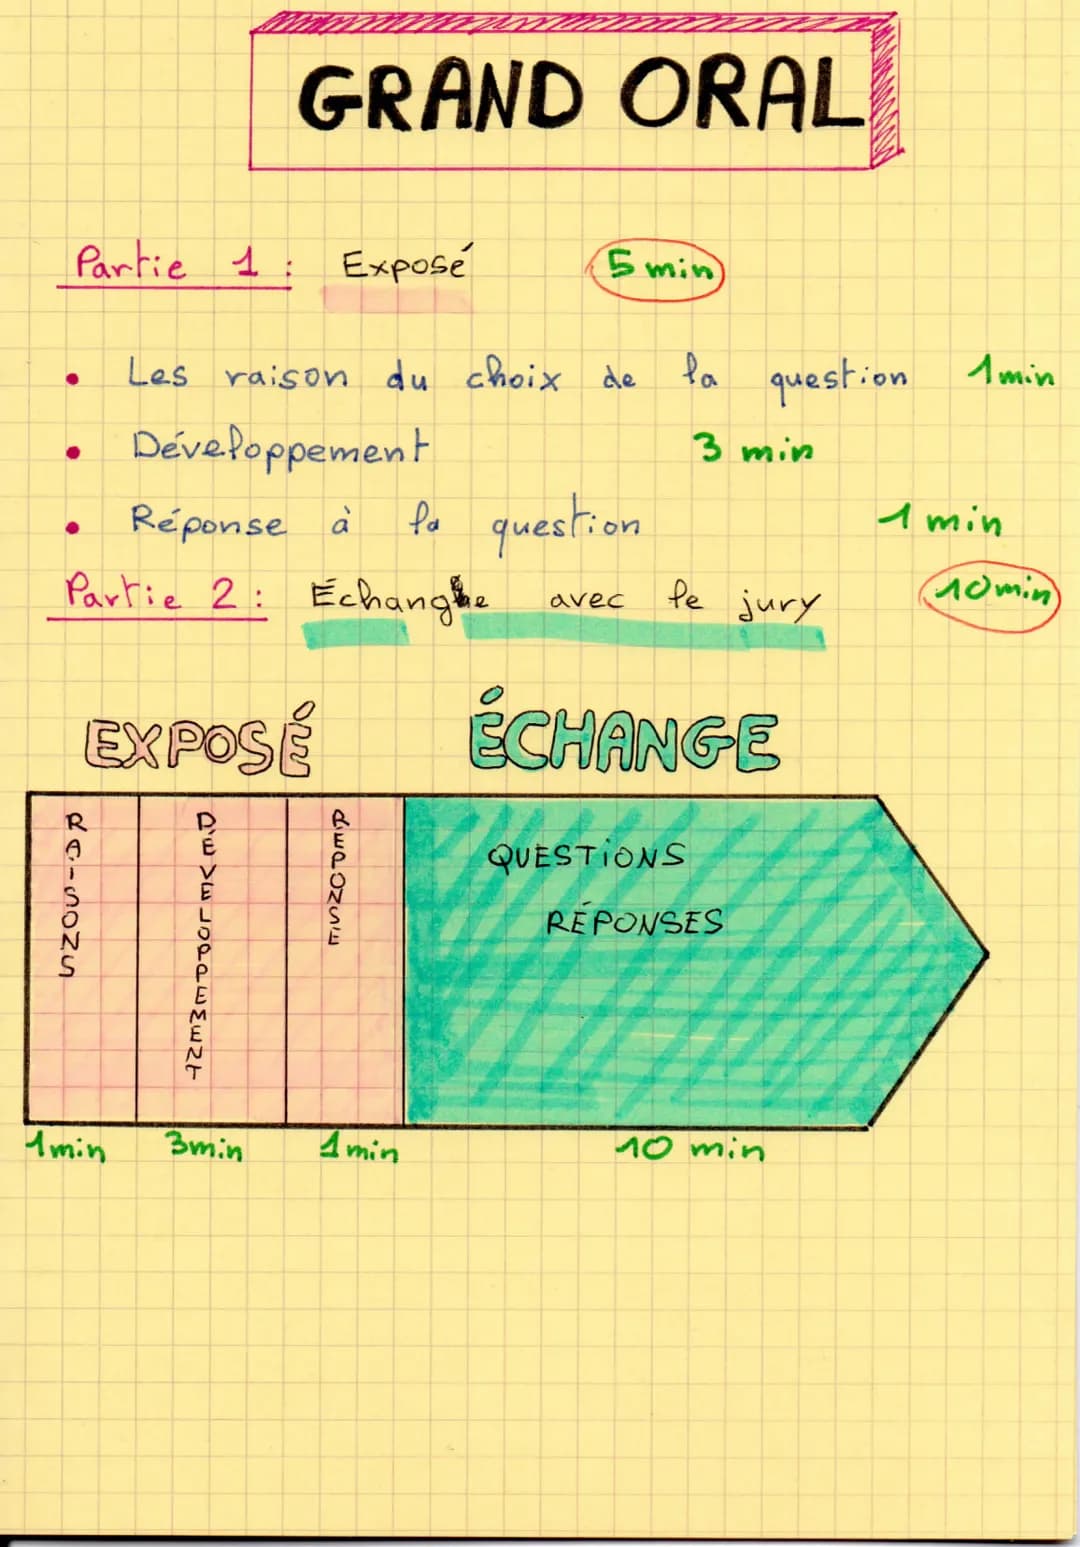 GRAND ORAL
Partie 1 : Exposé 5 min
• Les raison du choix de la question 1 min
• Développement 3 min
• Réponse à la question 1 min
Partie 2 : Échange avec le jury 10 min
EXPOSÉ ÉCHANGE
RAISONS
DÉVELOPPEMENT
RÉPONSE
QUESTIONS
RÉPONSES
1 min 3 min 1 min 10 min